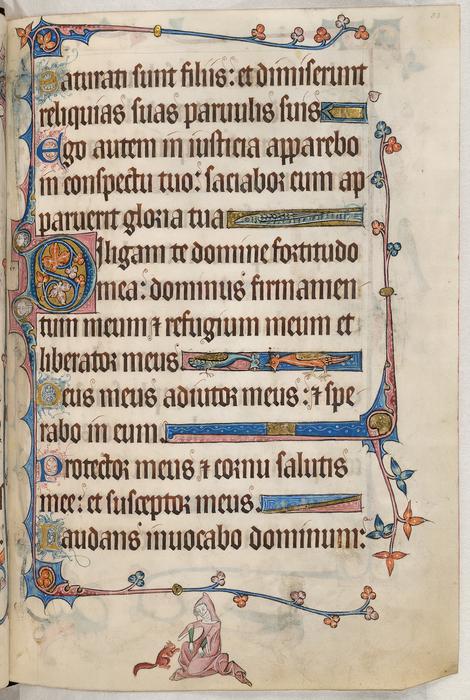 Saturati sunt filiis: et dimiserunt
reliquias suas paruulis suis
Ego autem in iusticia apparebo
in conspectu tuo: saciabor cum ap
paruerit gloria tua
Diligam te domine fortitudo
mea: dominus firmamen
tum meum ⁊ refugium meum et
liberator meus
Deus meus adiutor meus: ⁊ spe
rabo in eum.
Protector meus ⁊ cornu salutis
mee: et susceptor meus.
Laudans inuocabo dominum: